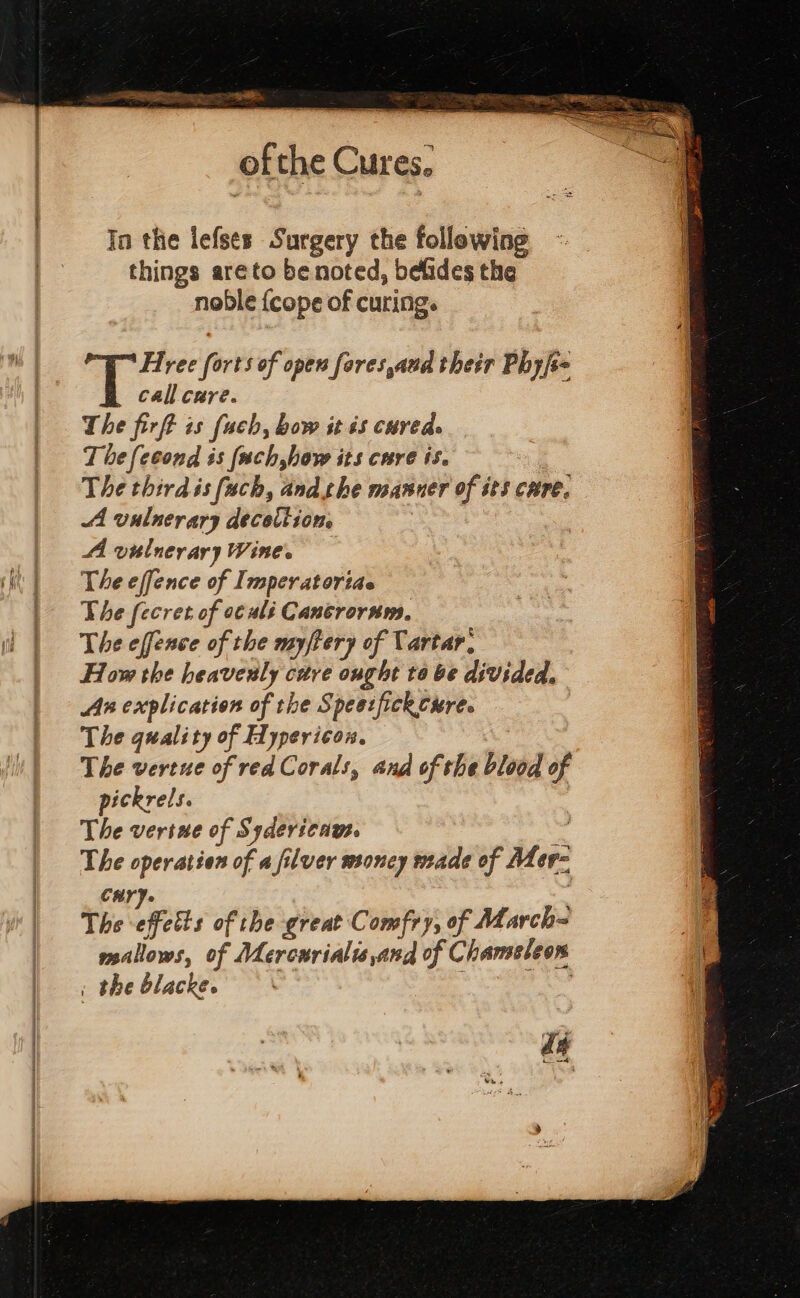 of the Cures.
In the leſser Surgery the following
things are to be noted, beſides the
noble ſcope of curing.
THree ſorts of open ſores, and their Phyſi-
call cure.
The firſt is ſuch, how it is cured.
The ſecond is ſuch, how its cure is.
The third is ſuch, and the manner of its cure.
A vulnerary decoction.
A vulnerary Wine.
The eſſence of Imperatoriae
The ſecret of oculi Cancrorum.
The eſſence of the myſtery of Tartar.
How the heavenly cure ought to be divided.
An explication of the Specifick cure.
The quality of Hypericon.
The vertue of red Corals, and of the blood of
pickrels.
The vertue of Sydericam.
The operation of a ſilver money made of Mer-
cury.
The effects of the great Comfry, of March-
mallows, of Mercurialis, and of Chameleon
the blacke.